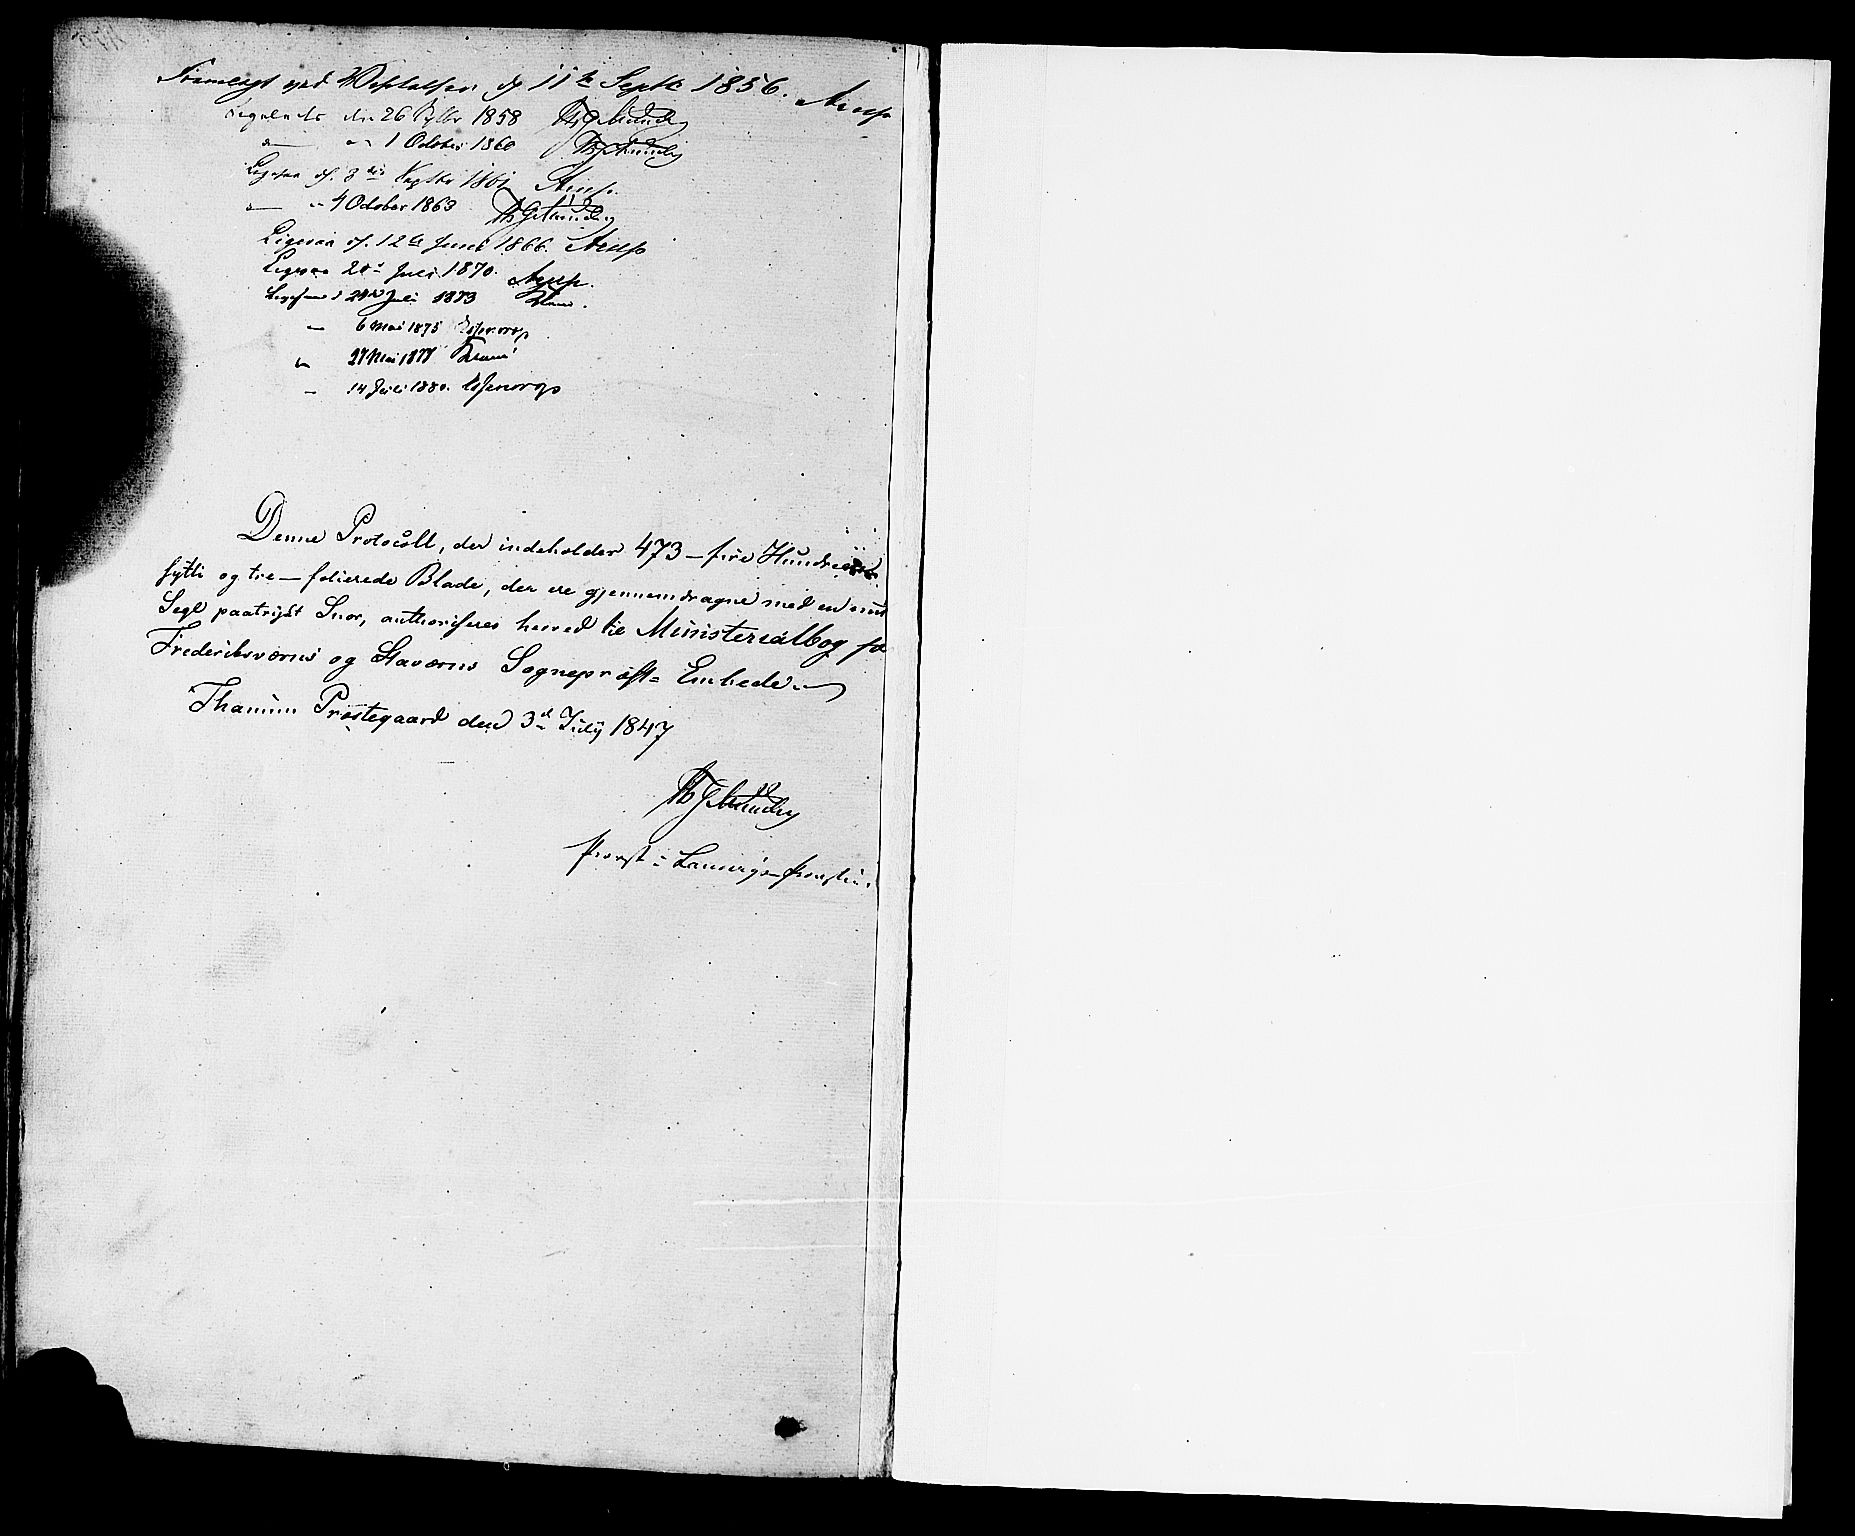 Fremlagt ved Visitatsen d. 11te Septbr 1856. Arup
Ligeledes den 26 Septbr 1858
1 October 1860
Ligesaa d. 8de Septbr 1861 Arup.
4 October 1863
Ligesaa d. 12te Juni 1866. Arup
Ligesaa Juli 1870. Arup.
Ligesaa Juli 1873
6 Mai 1875 Essendrop
Mai 1877
14 Juli 1880. Essendrop
Denne Protocoll, der indeholder 473 — fire Hundrede
sytti og tre — folierede Blade, der ere gjennemdragne med en med
Segl paatrykt Snor, authoriseres herved til Ministerialbog for
Frederiksværns og Staværns Sognepræst= Embede.
Thanum Præstegaard den 3d July 1847
Provst i Laurvigs Provstie.